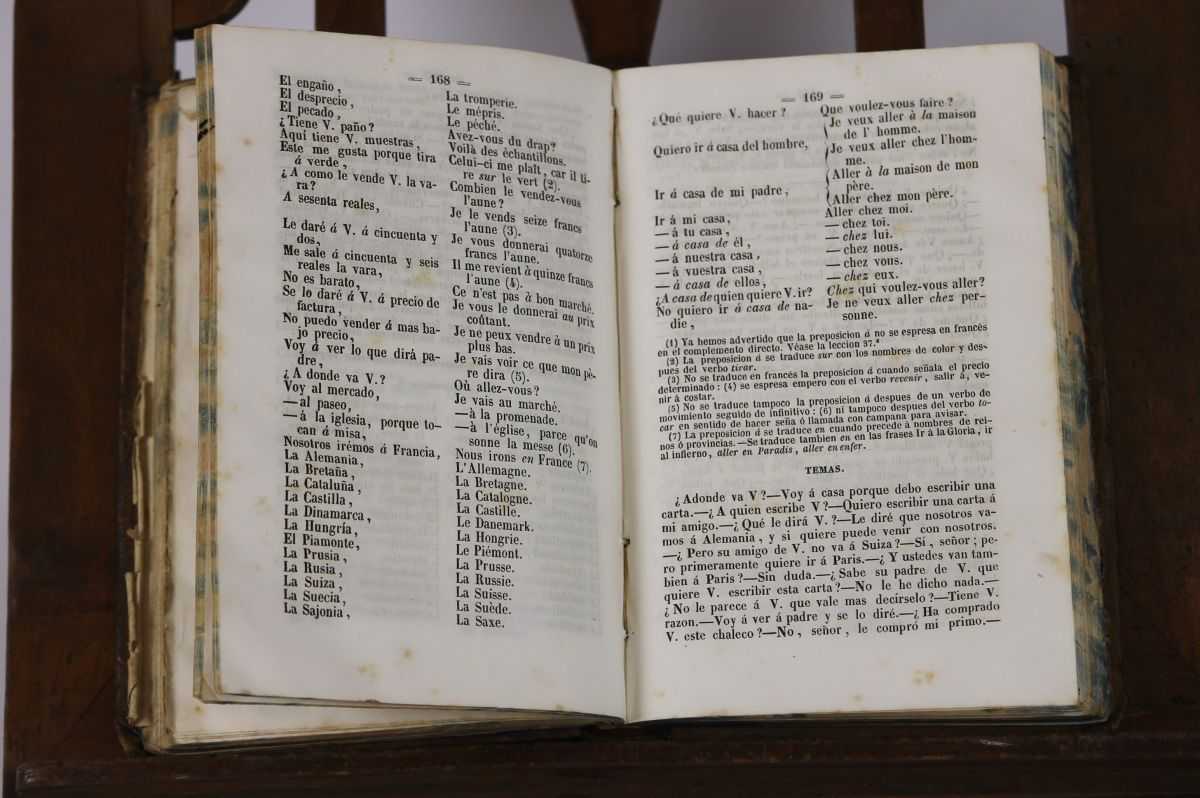 = 168 =
El engaño,
El desprecio,
El pecado,
¿Tiene V. paño?
Aqui tiene V. muestras,
Este me gusta porque tira
á verde,
¿A como le vende V. la va-
ra?
A sesenta reales,
Le daré á V. á cincuenta y
dos,
Me sale á cincuenta y seis
reales la vara,
No es barato,
Se lo daré á V. á precio de
factura,
No puedo vender á mas ba-
jo precio,
Voy á ver lo que dirá pa-
dre,
¿A donde va V.?
Voy al mercado,
—al paseo,
—á la iglesia, porque to-
can á misa,
Nosotros irémos á Francia,
La Alemania,
La Bretaña,
La Cataluña,
La Castilla,
La Dinamarca,
La Hungría,
El Piamonte,
La Prusia,
La Rusia,
La Suiza,
La Suecia,
La Sajonia,
La tromperie.
Le mépris.
Le péché.
Avez-vous du drap?
Voilà des échantillons.
Celui-ci me plaît, car il ti-
re sur le vert (2).
Combien le vendez-vous
l'aune?
Je le vends seize francs
l'aune (3).
Je vous donnerai quatorze
francs l'aune.
Il me revient à quinze francs
l'aune (4).
Ce n'est pas à bon marché.
Je vous le donnerai au prix
coûtant.
Je ne peux vendre à un prix
plus bas.
Je vais voir ce que mon pè-
re dira (5).
Où allez-vous?
Je vais au marché.
—à la promenade.
—à l'église, parce qu'on
sonne la messe (6).
Nous irons en France (7).
L'Allemagne.
La Bretagne.
La Catalogne.
La Castille.
Le Danemark.
La Hongrie.
Le Piémont.
La Prusse.
La Russie.
La Suisse.
La Suède.
La Saxe.
= 169 =
¿Qué quiere V. hacer?
Quiero ir á casa del hombre,
Ir á casa de mi padre,
Ir á mi casa,
—á tu casa,
—á casa de él,
—á nuestra casa,
—á vuestra casa,
—á casa de ellos,
¿A casa de quien quiere V. ir?
No quiero ir á casa de na-
die,
Que voulez-vous faire?
Je veux aller à la maison
de l' homme.
Je veux aller chez l'hom-
me.
Aller à la maison de mon
père.
Aller chez mon père.
Aller chez moi.
—chez toi.
—chez lui.
—chez nous.
—chez vous.
—chez eux.
Chez qui voulez-vous aller?
Je ne veux aller chez per-
sonne.
(1) Ya hemos advertido que la preposicion á no se espresa en francés
en el complemento directo. Véase la leccion 37.ª
(2) La preposicion á se traduce sur con los nombres de color y des-
pues del verbo tirar.
(3) No se traduce en francés la preposicion á cuando señala el precio
determinado: (4) se espresa empero con el verbo revenir, salir á, ve-
nir á costar.
(5) No se traduce tampoco la preposicion á despues de un verbo de
movimiento seguido de infinitivo: (6) ni tampoco despues del verbo to-
car en sentido de hacer seña ó llamada con campana para avisar.
(7) La preposicion á se traduce en cuando precede à nombres de rei-
nos ó provincias.—Se traduce tambien en en las frases Ir á la Gloria, ir
al infierno, aller en Paradis, aller en enfer.
TEMAS.
¿Adonde va V?—Voy á casa porque debo escribir una
carta.—¿A quien escribe V?—Quiero escribir una carta á
mi amigo.—¿Qué le dirá V.?—Le diré que nosotros va-
mos á Alemania, y si quiere puede venir con nosotros.
—¿Pero su amigo de V. no va á Suiza?—Sí, señor; pe-
ro primeramente quiere ir á Paris.—¿Y ustedes van tam-
bien á Paris?—Sin duda.—¿Sabe su padre de V. que
quiere V. escribir esta carta?—No le he dicho nada.—
¿No le parece á V. que vale mas decírselo?—Tiene V.
razon.—Voy á ver á padre y se lo diré.—¿Ha comprado
V. este chaleco?—No, señor, le compró mi primo.—